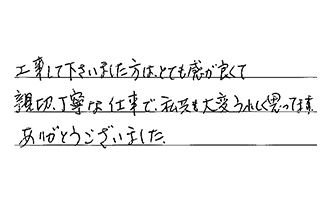 工事して下さいました方は、とても感が良くて
親切、丁寧な仕事で、私共も大変うれしく思ってます。
ありがとうございました。